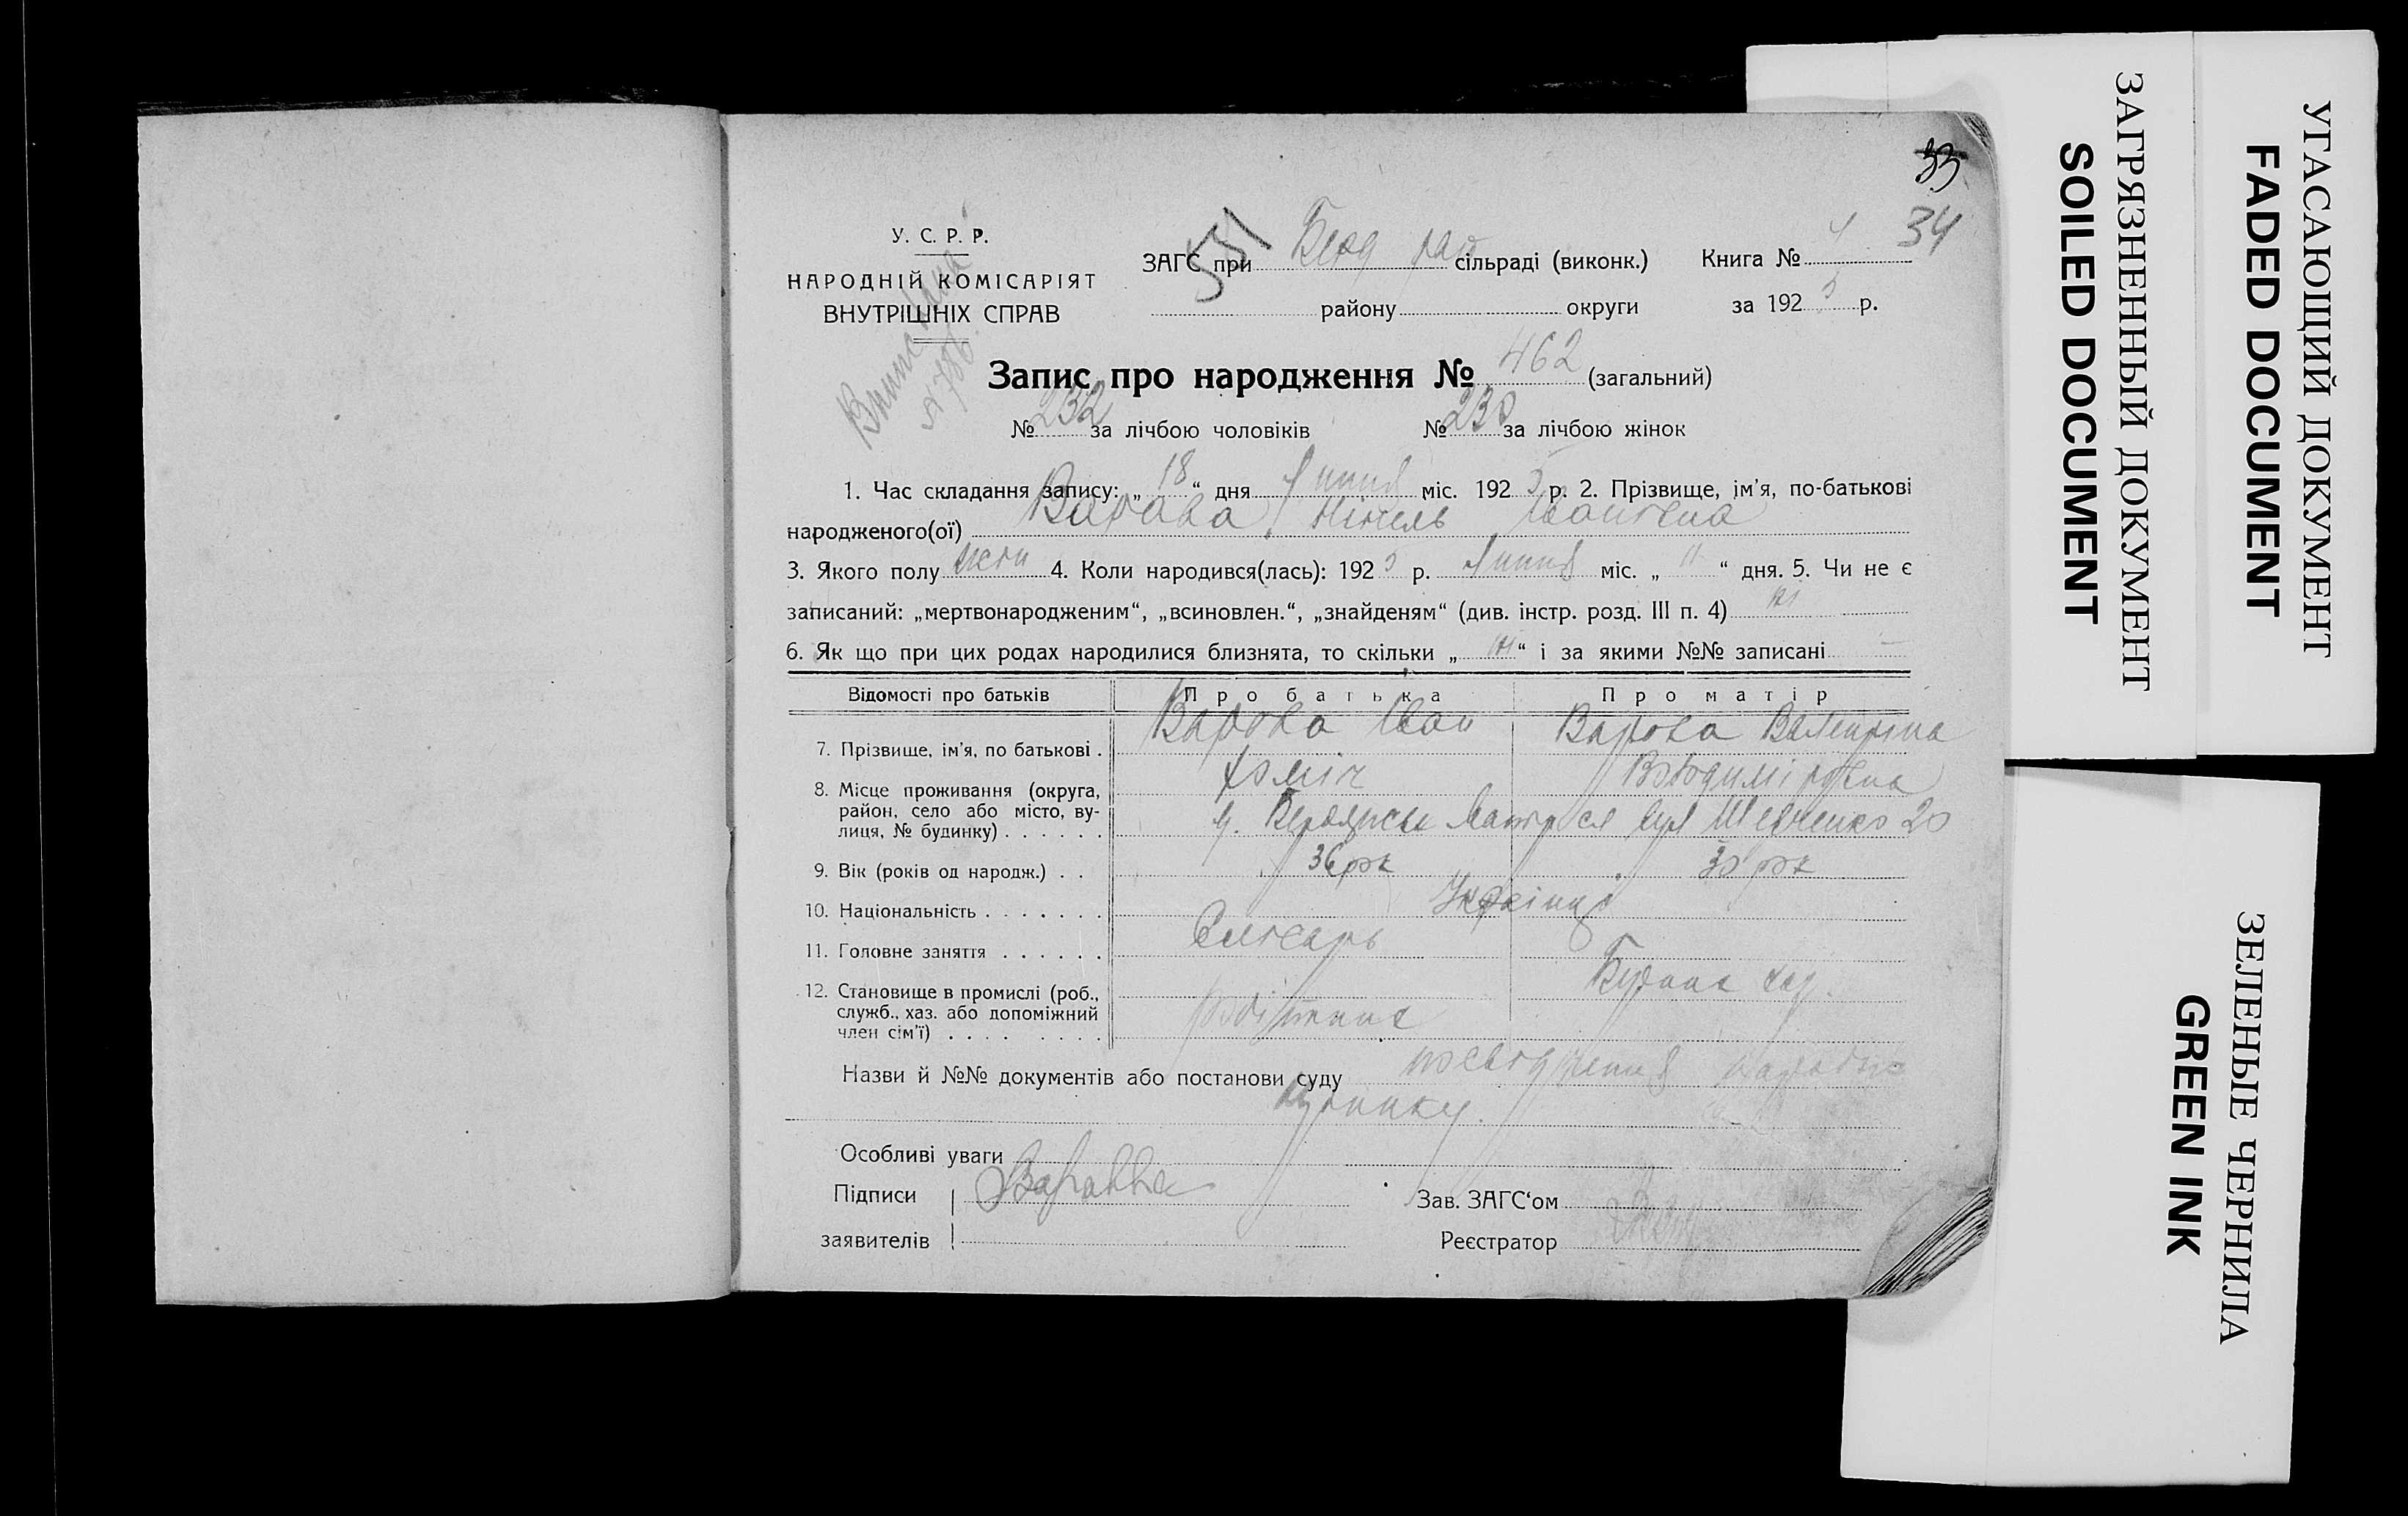 33
34
У. С. Р. Р.
НАРОДНІЙ КОМІСАРІЯТ
ВНУТРІШНІХ СПРАВ
551
ЗАГС при Берд рай сільраді (виконк.)
району округи
Книга № 4
за 192 р.
Запис про народження № 462 (загальний)
№ 232 за лічбою чоловіків № 230 за лічбою жінок
1. Час складання запису: „ 18 “ дня Липня міс. 192 р. 2. Прізвище, ім’я, по-батькові
народженого(ої) Варава Нінель Івановна
3. Якого полу жоти 4. Коли народився(лась): 192 р. Липня міс. „ 11 “ дня. 5. Чи не є
записаний: „мертвонародженим“, „всиновлен.“, „знайденям“ (див. інстр. розд. III п. 4) ні
6. Як що при цих родах народилися близнята, то скільки „ ні “ і за якими №№ записані —
Відомості про батьків Про батька Про матір
7. Прізвище, ім’я, по батькові . Варава Іван Хоміч Варава Валентіна Володиміровна
8. Місце проживання (округа,
район, село або місто, ву-
лиця, № будинку) . . . . . . м. Бердянськ вул Шевченко 20
9. Вік (років од народж.) . . 36 рок 30 рок
10. Національність . . . . . . . Українці
11. Головне заняття . . . . . . Слюсарь
12. Становище в промислі (роб.,
служб., хаз. або допоміжний
член сім’ї) . . . . . . . . робітник
Назви й №№ документів або постанови суду посвідчення
будинку.
Особливі уваги
Підписи Варавва Зав. ЗАГС‘ом
заявителів Реєстратор
УГАСАЮЩИЙ ДОКУМЕНТ
FADED DOCUMENT
ЗАГРЯЗНЕННЫЙ ДОКУМЕНТ
SOILED DOCUMENT
ЗЕЛЕНЫЕ ЧЕРНИЛА
GREEN INK